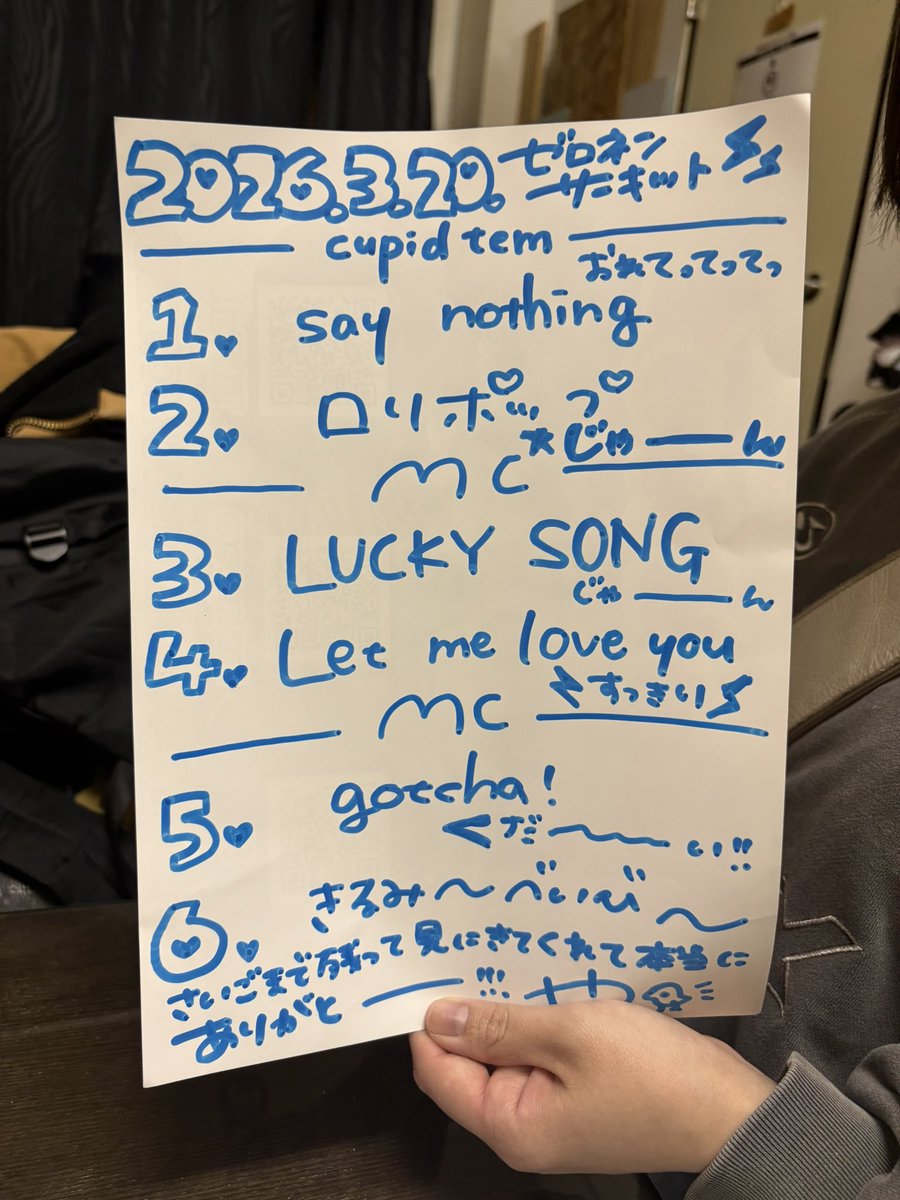 2026.3.20. ゼロネン
サーキット
cupid tem
おれてってってっ
1. say nothing
2. ロリポップ
*じゃーーん
MC
3. LUCKY SONG
じゃーーん
4. Let me love you
すっきり
MC
5. gotcha!
くだ〜〜い!!
6. きるみ〜べいび〜
さいごまで残って見にきてくれて本当に
ありがとーー!!!